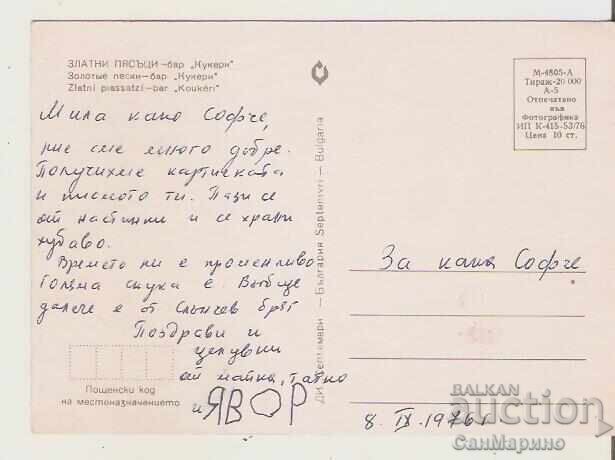 ЗЛАТНИ ПЯСЪЦИ – бар „Кукери“
Золотые пески – бар „Кукери“
Zlatni piassatzi – bar „Koukéri“
Мила како Софче,
ние сме много добре.
Получихме картичката
и писмото ти. Пази се
от настинки и се храни
хубаво.
Времето ни е променливо
Голяма скука е. Въобще
далече е от Слънчев бряг
Поздрави и
целувки
от майка, татко
и ЯВОР
Пощенски код
на местоназначението
ДИ „Септември“ — България Septemvri — Bulgaria
М-4805-А
Тираж-20 000
А-5
Отпечатано
във
Фотографика
ИП К-415-53/76
Цена 10 ст.
За кака Софче
8. IX. 1976 г
BALKAN
auction
СанМарино